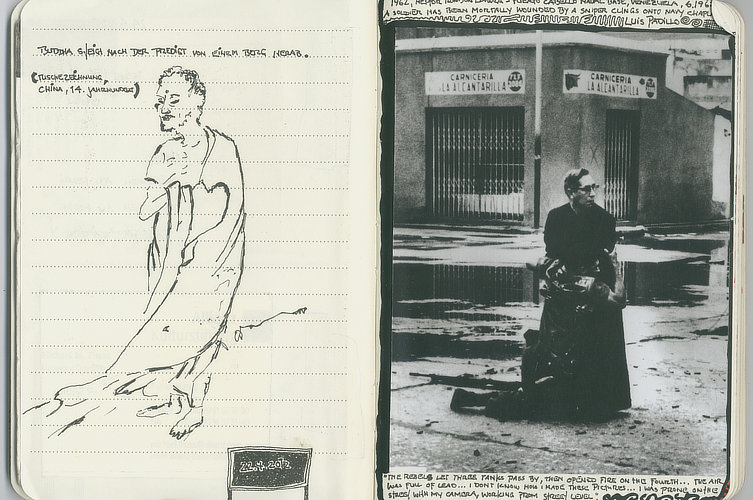 BUDDHA STEIGT NACH DER PREDIGT VON EINEM BERG HERAB.
(TUSCHEZEICHNUNG,
CHINA, 14. JAHRHUNDERT)
22.4.2012
1962, HECTOR RONDON LOVERA - PUERTO CABELLO NAVAL BASE, VENEZUELA, 6/196
A SOLDIER HAS BEEN MORTALLY WOUNDED BY A SNIPER CLINGS ONTO NAVY CHAPL
LUIS PADILLO
CARNICERIA
LA ALCANTARILLA
CARNICERIA
LA ALCANTARILLA
"THE REBELS LET THREE TANKS PASS BY, THEN OPENED FIRE ON THE FOURTH... THE AIR
WAS FULL OF LEAD... I DON'T KNOW HOW I MADE THESE PICTURES... I WAS PRONE ON THE
STREET WITH MY CAMERA, WORKING FROM STREET LEVEL."